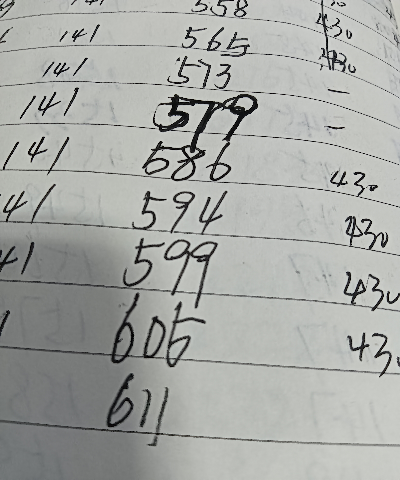 141 558
141 565 430
141 573 430
141 579 —
141 586 — 430
141 594 430
41 599 430
605 43
611